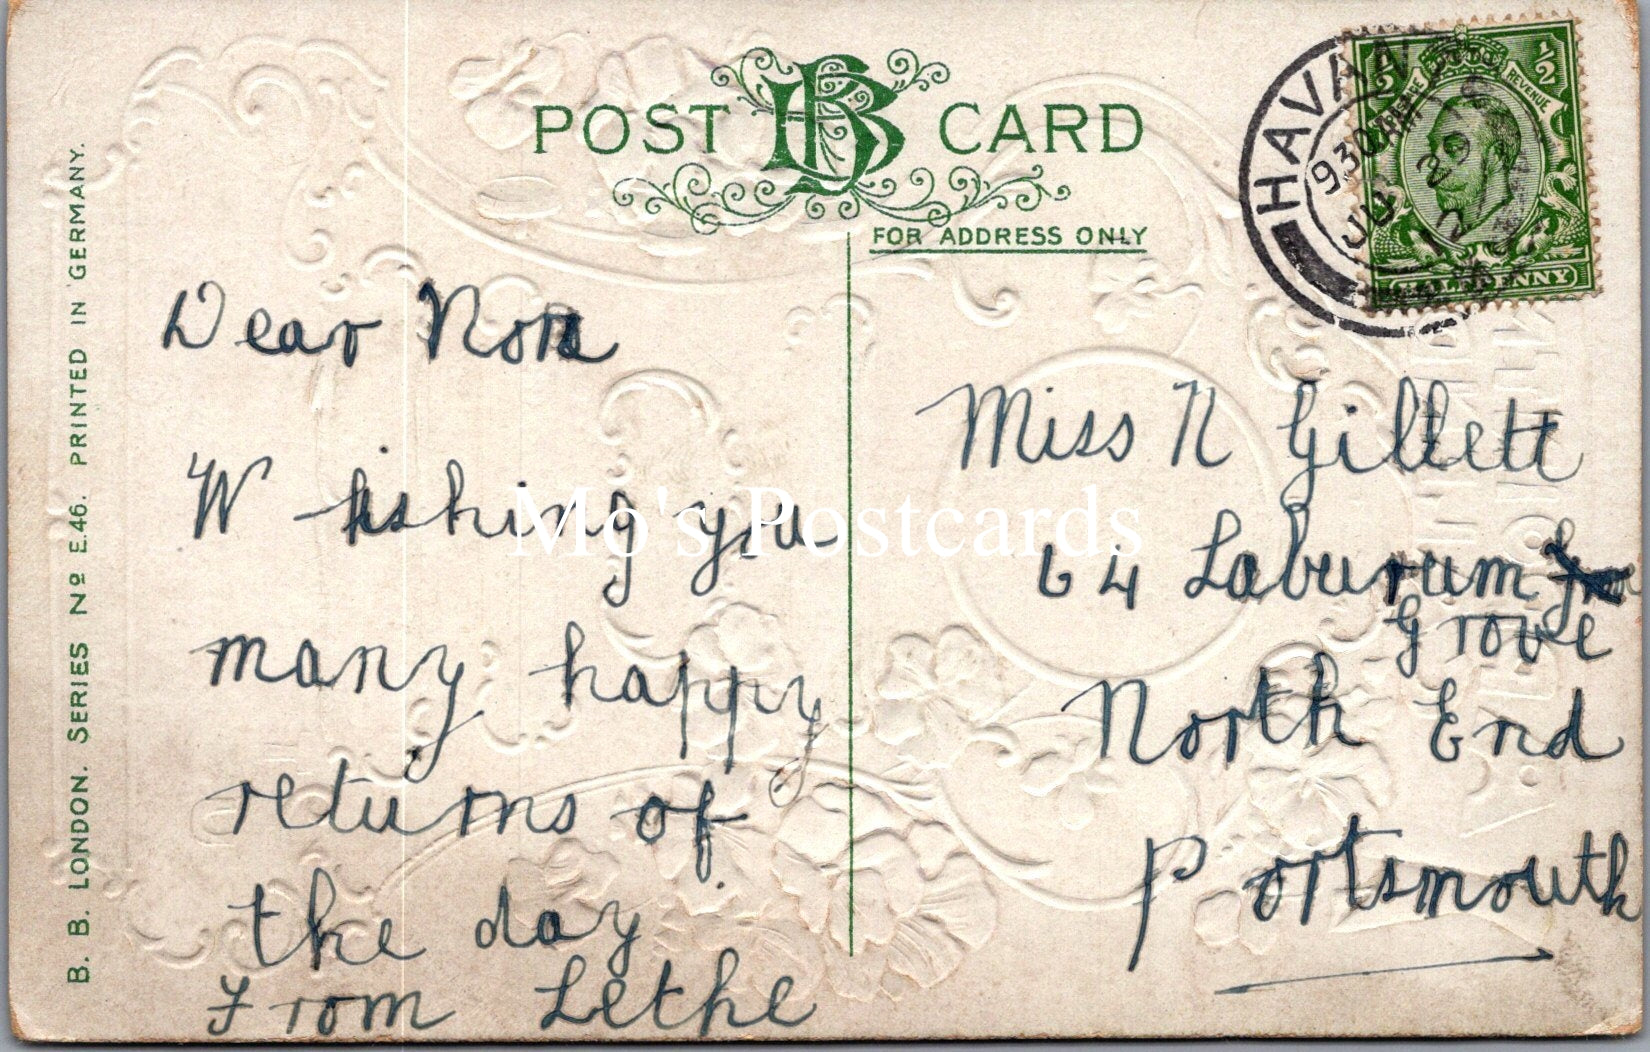 POST BB CARD
FOR ADDRESS ONLY
HAVAN
9 30 AM
JU 29
12
POSTAGE REVENUE
1/2
HALFPENNY
B. B. LONDON. SERIES No E.46. PRINTED IN GERMANY.
Dear Nora
Wishing you
many happy
returns of
the day
From Lethe
Miss N Gillett
64 Laburum
Grove
North End
Portsmouth
Mo's Postcards